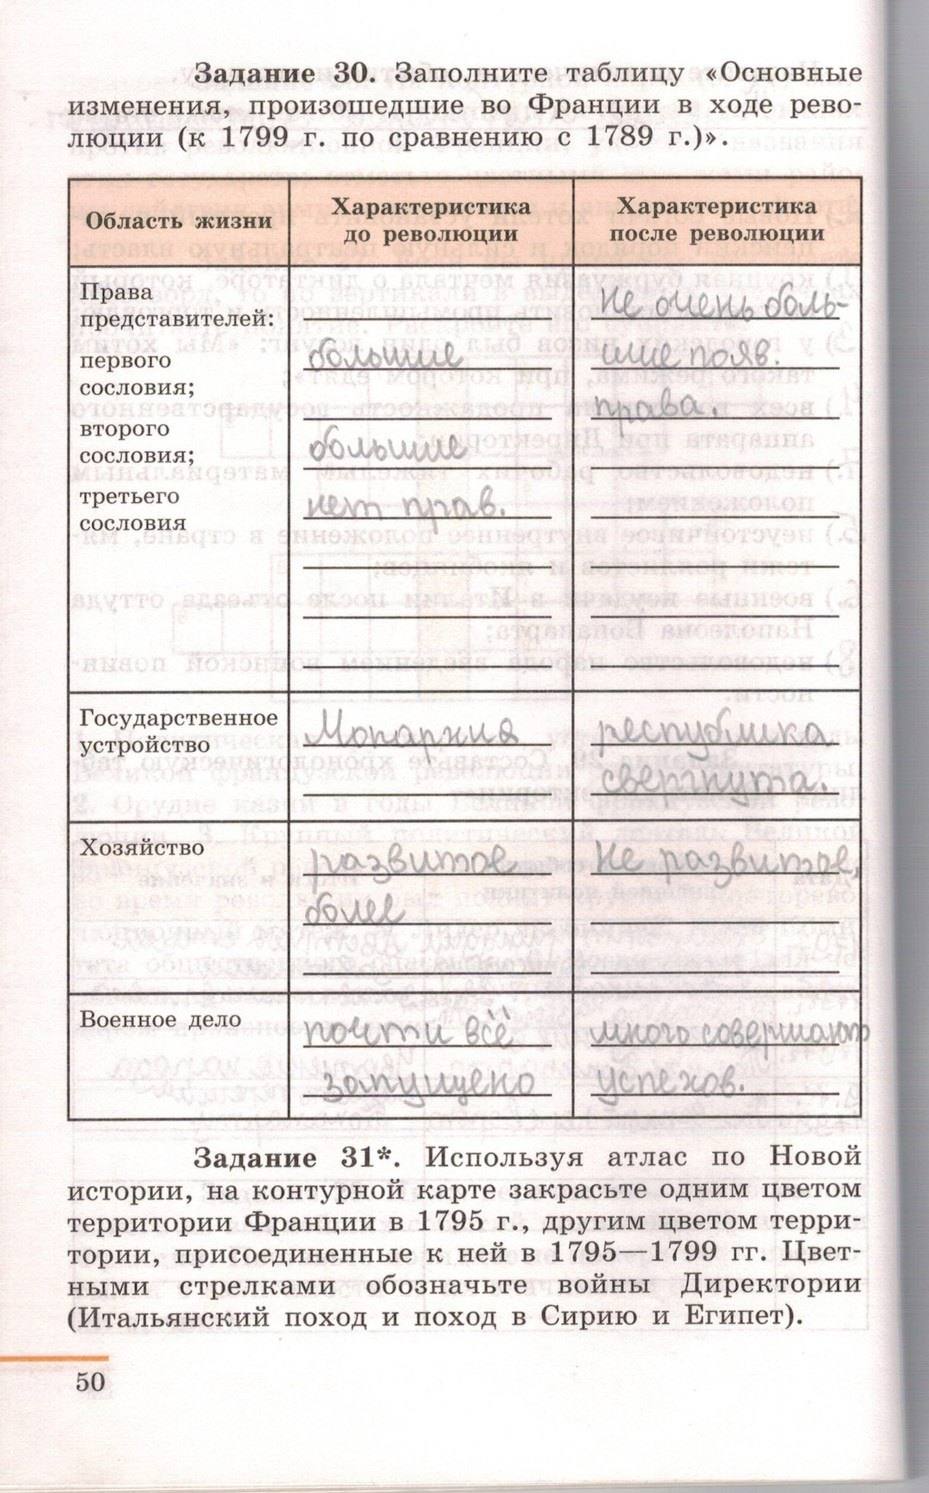 Задание 30. Заполните таблицу «Основные
изменения, произошедшие во Франции в ходе рево-
люции (к 1799 г. по сравнению с 1789 г.)».
Область жизни
Характеристика
до революции
Характеристика
после революции
Права
представителей:
первого
сословия;
второго
сословия;
третьего
сословия
большие
большие
нет прав.
Не очень боль-
шие появ.
права.
Государственное
устройство
Монархия
республика
свергнута.
Хозяйство
развитое
более
Не развитое,
Военное дело
почти всё
запущено
много совершают
успехов.
Задание 31*. Используя атлас по Новой
истории, на контурной карте закрасьте одним цветом
территории Франции в 1795 г., другим цветом терри-
тории, присоединенные к ней в 1795—1799 гг. Цвет-
ными стрелками обозначьте войны Директории
(Итальянский поход и поход в Сирию и Египет).
50